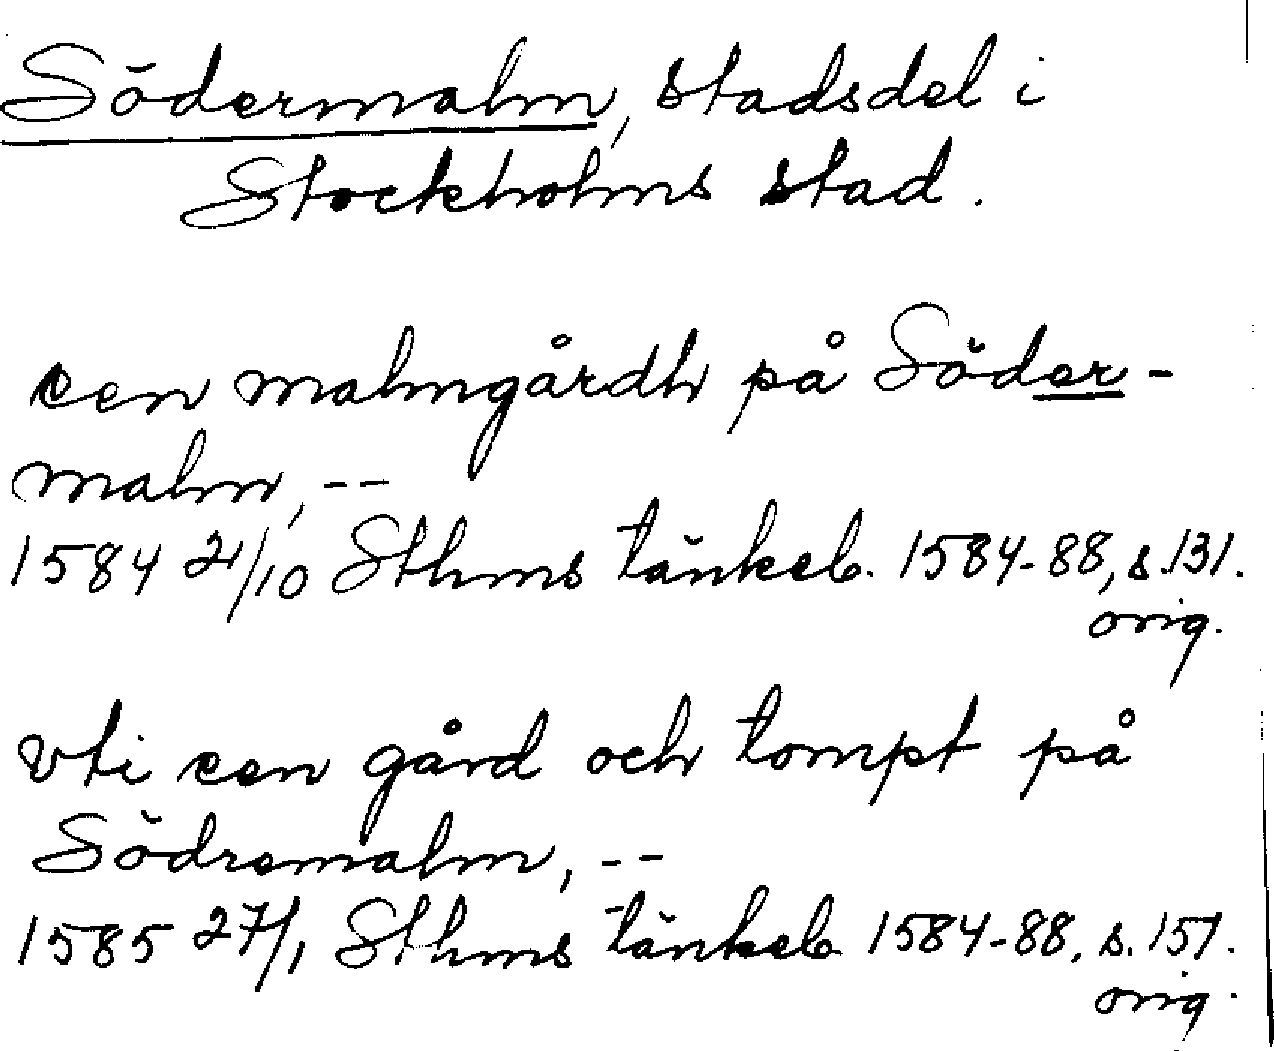 Södermalm, stadsdel i
Stockholms stad.
een malmgårdh på Söder-
malm, --
1584 21/10 Sthms tänkeb. 1584-88, s.131.
orig.
vti een gård och tompt på
Södremalm, --
1585 27/1 Sthms tänkeb. 1584-88, s. 151.
orig.